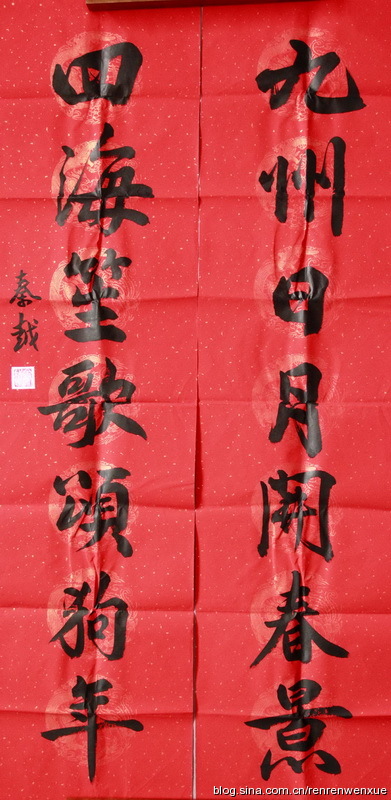 九州日月開春景
四海笙歌頌狗年
秦越
blog.sina.com.cn/renrenwenxue